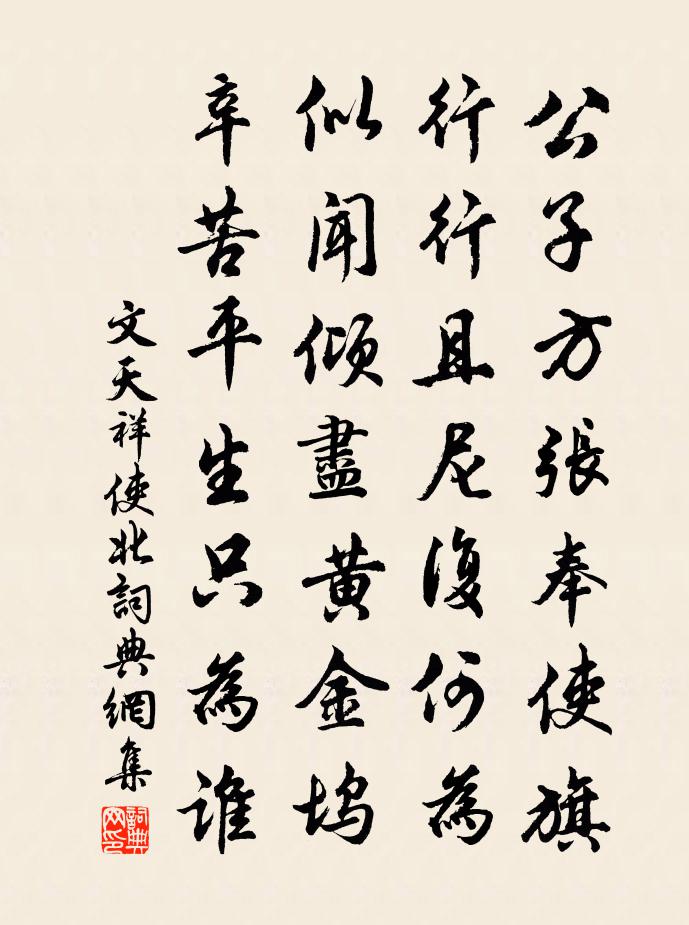 公子方張奉使旗
行行且尼復何為
似聞傾盡黃金塢
辛苦平生只為誰
文天祥使北詞典網集
詞典
网印